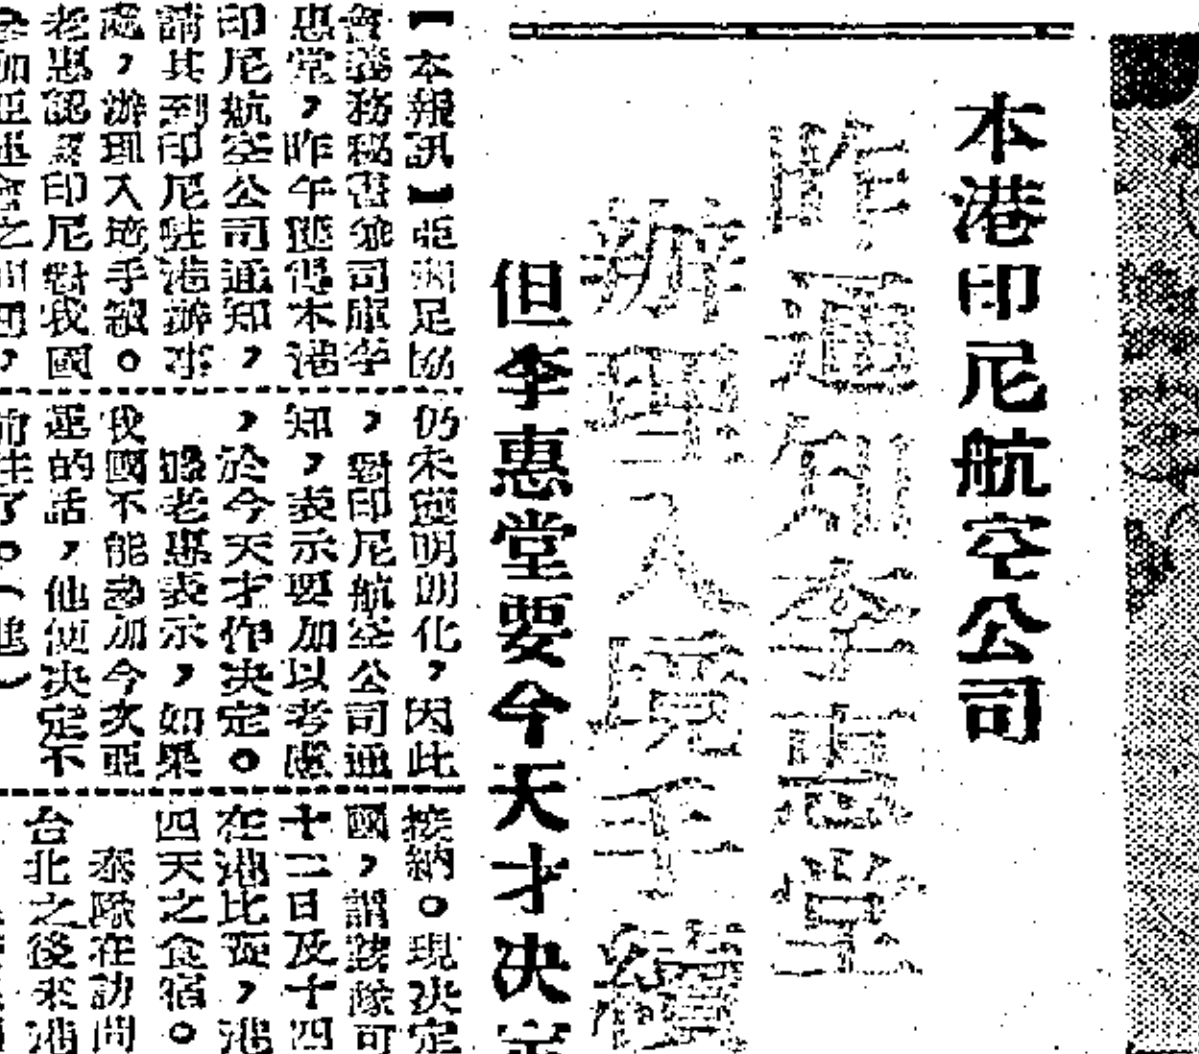 本港印尼航空公司
昨通知李惠堂
辦理入境手續
但李惠堂要今天才決定
【本報訊】亞洲足協
會義務秘書兼司庫李
惠堂，昨午獲得本港
印尼航空公司通知，
請其到印尼駐港辦事
處，辦理入境手續。
老惠認為印尼對我國
參加亞運會之問題，
仍未獲明朗化，因此
，對印尼航空公司通
知，表示要加以考慮
，於今天才作決定。
據老惠表示，如果
我國不能參加今次亞
運的話，他便決定不
前往了。（逸）
接納。現決定
國，謂該隊可
十二日及十四
在港比賽，港
四天之食宿。
泰隊在訪問
台北之後來港